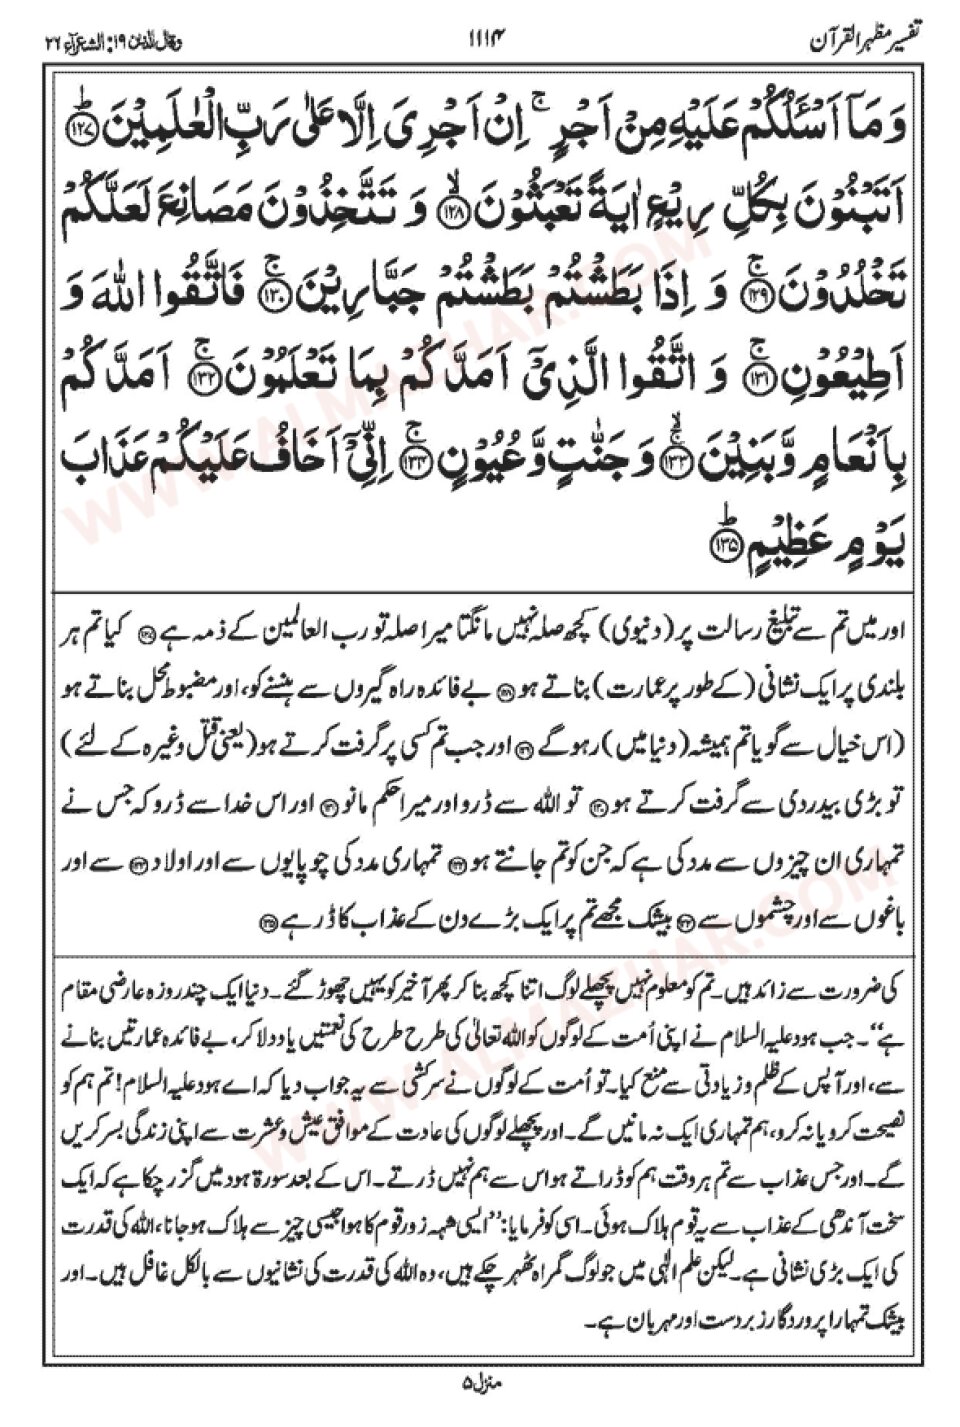 تفسیر مظہر القرآن ۱۱۱۴ وقال الذین ۱۹: الشعرآء ۲۶
وَمَآ اَسْـَٔلُكُمْ عَلَيْهِ مِنْ اَجْرٍ ۚ اِنْ اَجْرِىَ اِلَّا عَلٰى رَبِّ الْعٰلَمِيْنَ ؕ﴿۱۲۷﴾
اَتَبْنُوْنَ بِكُلِّ رِيْعٍ اٰيَةً تَعْبَثُوْنَ ۙ﴿۱۲۸﴾ وَ تَتَّخِذُوْنَ مَصَانِعَ لَعَلَّكُمْ
تَخْلُدُوْنَ ۚ﴿۱۲۹﴾ وَ اِذَا بَطَشْتُمْ بَطَشْتُمْ جَبَّارِيْنَ ۚ﴿۱۳۰﴾ فَاتَّقُوا اللّٰهَ وَ
اَطِيْعُوْنِ ۚ﴿۱۳۱﴾ وَ اتَّقُوا الَّذِىْٓ اَمَدَّكُمْ بِمَا تَعْلَمُوْنَ ۚ﴿۱۳۲﴾ اَمَدَّكُمْ
بِاَنْعَامٍ وَّبَنِيْنَ ۚۙ﴿۱۳۳﴾ وَ جَنّٰتٍ وَّ عُيُوْنٍ ۚ﴿۱۳۴﴾ اِنِّىْٓ اَخَافُ عَلَيْكُمْ عَذَابَ
يَوْمٍ عَظِيْمٍ ؕ﴿۱۳۵﴾
اور میں تم سے تبلیغ رسالت پر (دنیوی) کچھ صلہ نہیں مانگتا میرا صلہ تو رب العالمین کے ذمہ ہے ﴿۱۲۷﴾ کیا تم ہر
بلندی پر ایک نشانی (کے طور پر عمارت) بناتے ہو ﴿۱۲۸﴾ بے فائدہ راہ گیروں سے ہنسنے کو، اور مضبوط محل بناتے ہو
(اس خیال سے گویا تم ہمیشہ (دنیا میں) رہو گے ﴿۱۲۹﴾ اور جب تم کسی پر گرفت کرتے ہو (یعنی قتل وغیرہ کے لئے)
تو بڑی بیدردی سے گرفت کرتے ہو ﴿۱۳۰﴾ تو اللہ سے ڈرو اور میرا حکم مانو ﴿۱۳۱﴾ اور اس خدا سے ڈرو کہ جس نے
تمہاری ان چیزوں سے مدد کی ہے کہ جن کو تم جانتے ہو ﴿۱۳۲﴾ تمہاری مدد کی چوپایوں سے اور اولاد ﴿۱۳۳﴾ سے اور
باغوں سے اور چشموں سے ﴿۱۳۴﴾ بیشک مجھے تم پر ایک بڑے دن کے عذاب کا ڈر ہے ﴿۱۳۵﴾
کی ضرورت سے زائد ہیں۔ تم کو معلوم نہیں پچھلے لوگ اتنا کچھ بنا کر پھر آخیر کو یہیں چھوڑ گئے۔ دنیا ایک چند روزہ عارضی مقام
ہے‘‘۔ جب ہود علیہ السلام نے اپنی اُمت کے لوگوں کو اللہ تعالیٰ کی طرح طرح کی نعمتیں یاد دلا کر، بے فائدہ عمارتیں بنانے
سے، اور آپس کے ظلم و زیادتی سے منع کیا۔ تو اُمت کے لوگوں نے سرکشی سے یہ جواب دیا کہ اے ہود علیہ السلام! تم ہم کو
نصیحت کرو یا نہ کرو، ہم تمہاری ایک نہ مانیں گے۔ اور پچھلے لوگوں کی عادت کے موافق عیش و عشرت سے اپنی زندگی بسر کریں
گے۔ اور جس عذاب سے تم ہر وقت ہم کو ڈراتے ہو اس سے ہم نہیں ڈرتے۔ اس کے بعد سورۃ ہود میں گزر چکا ہے کہ ایک
سخت آندھی کے عذاب سے یہ قوم ہلاک ہوئی۔ اسی کو فرمایا: ’’ایسی شہہ زور قوم کا ہوا جیسی چیز سے ہلاک ہو جانا، اللہ کی قدرت
کی ایک بڑی نشانی ہے۔ لیکن علم الٰہی میں جو لوگ گمراہ ٹھہر چکے ہیں، وہ اللہ کی قدرت کی نشانیوں سے بالکل غافل ہیں۔ اور
بیشک تمہارا پروردگار زبردست اور مہربان ہے۔
منزل ۵
WWW.ALMAZHAR.COM
WWW.ALMAZHAR.COM